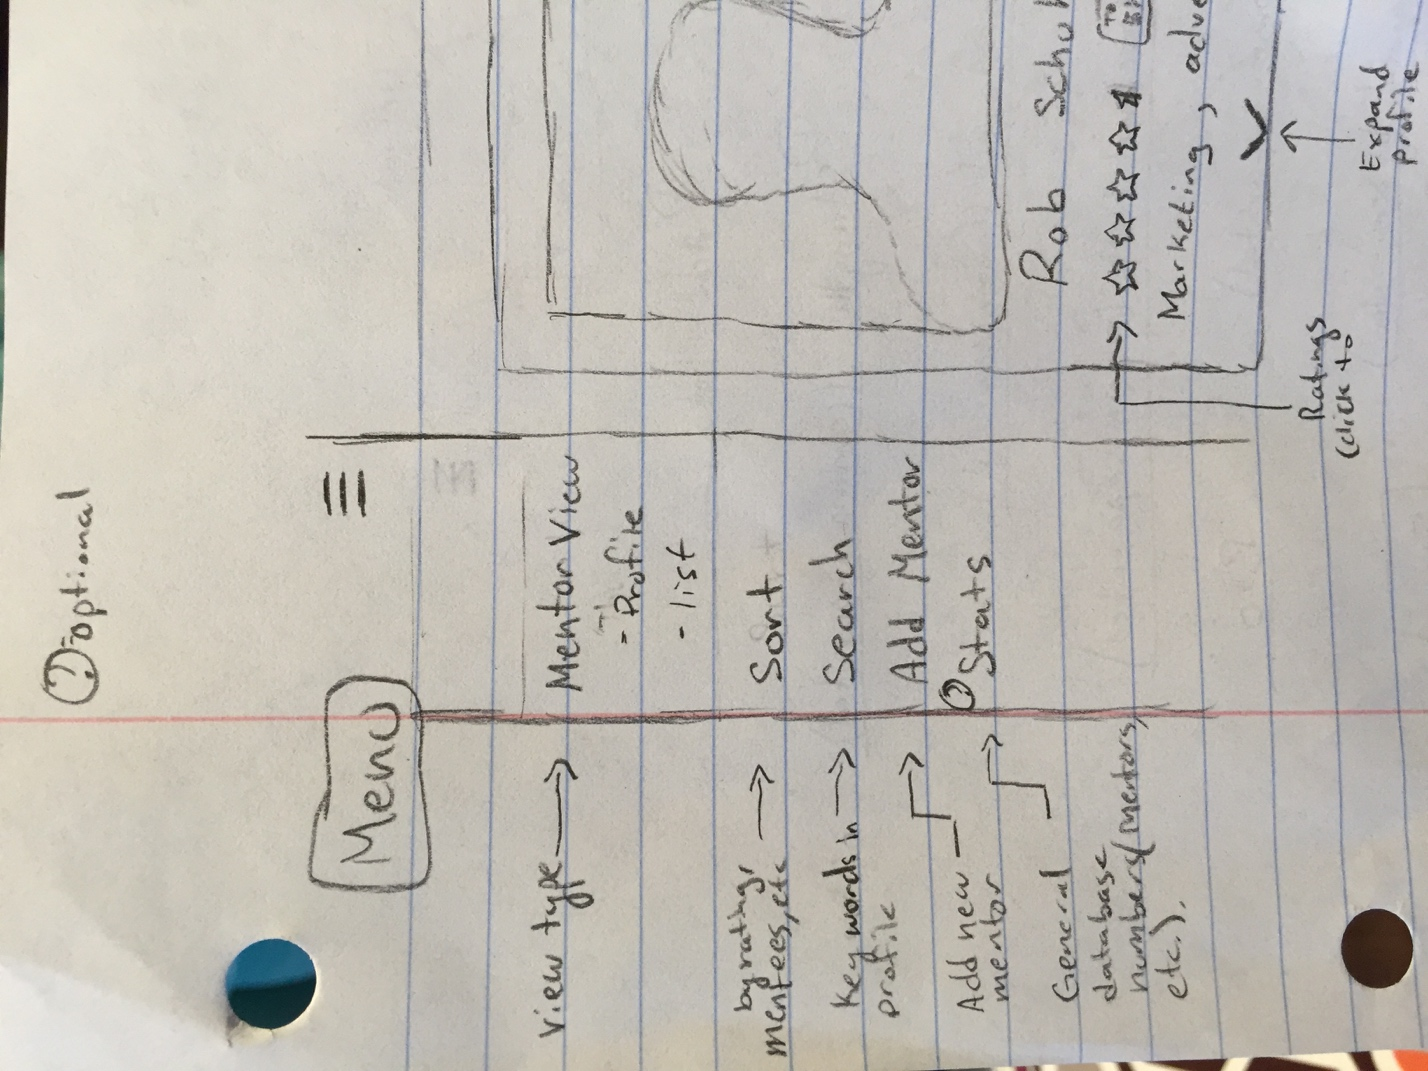 ? - optional
Menu
view type → Mentor View
- Profile
- list
by rating, mentees, etc → Sort
Key words in profile → Search
Add new mentor → Add Mentor
General database numbers (mentors, etc.). → ? Stats
Rob
Marketing,
Ratings
(click to
Expand
profile